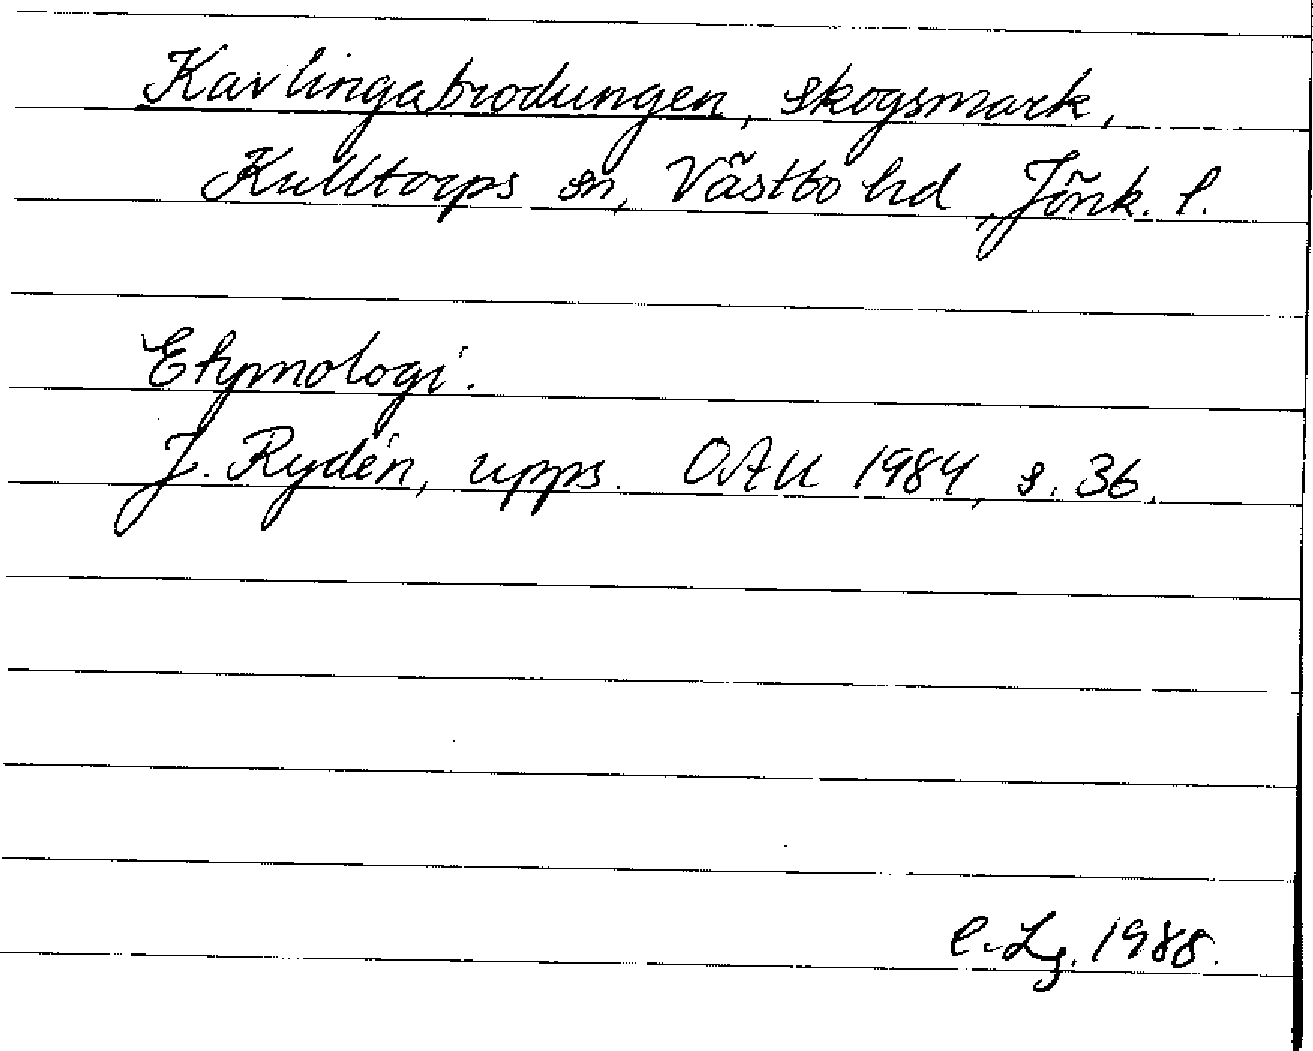 Kavlingabrodungen, skogsmark,
Kulltorps sn, Västbo hd, Jönk. l.
Etymologi.
J. Rydén, upps. OAU 1984, s. 36.
C. Lg. 1988.